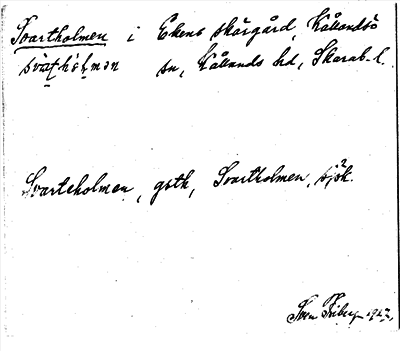 Svartholmen i Ekens skärgård, Kållandsö
svart,hòlmən sn, Kållands hd, Skarab. l.
Svarteholmen, gstk, Svartholmen, sjök.
Sven Friberg 1927.